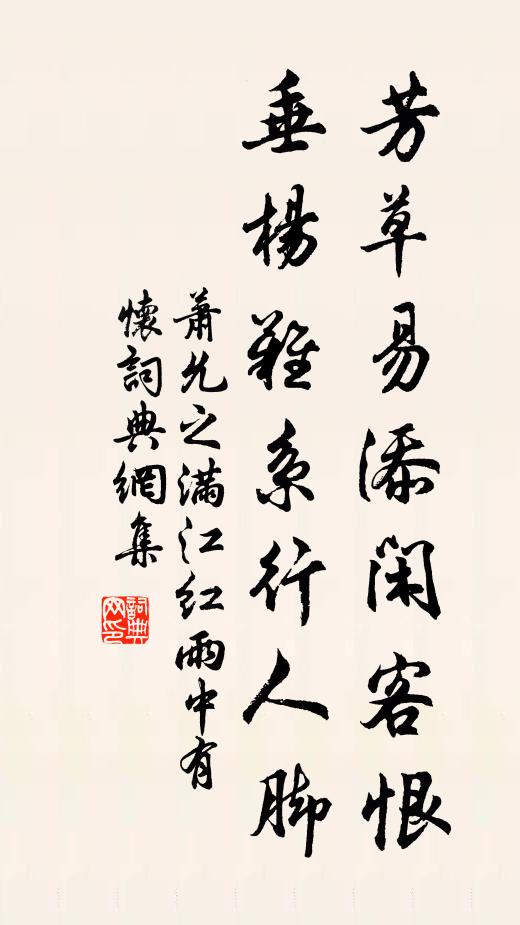 芳草易添閑客恨
垂楊難系行人脚
蕭允之满江红雨中有
懷詞典網集
詞典网印